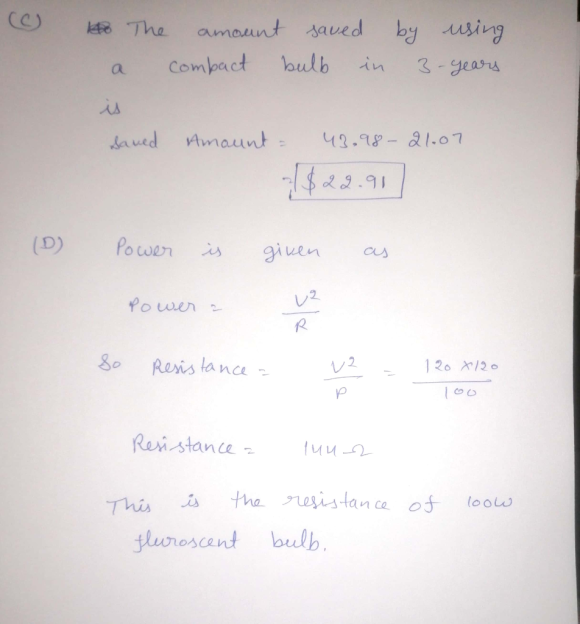 (C) The amount saved by using
a compact bulb in 3-years
is
Saved Amount = 43.98 - 21.07
= $22.91
(D) Power is given as
Power = V²/R
So Resistance = V²/P = 120 x120/100
Resistance = 144 Ω
This is the resistance of 100W
fluroscent bulb.